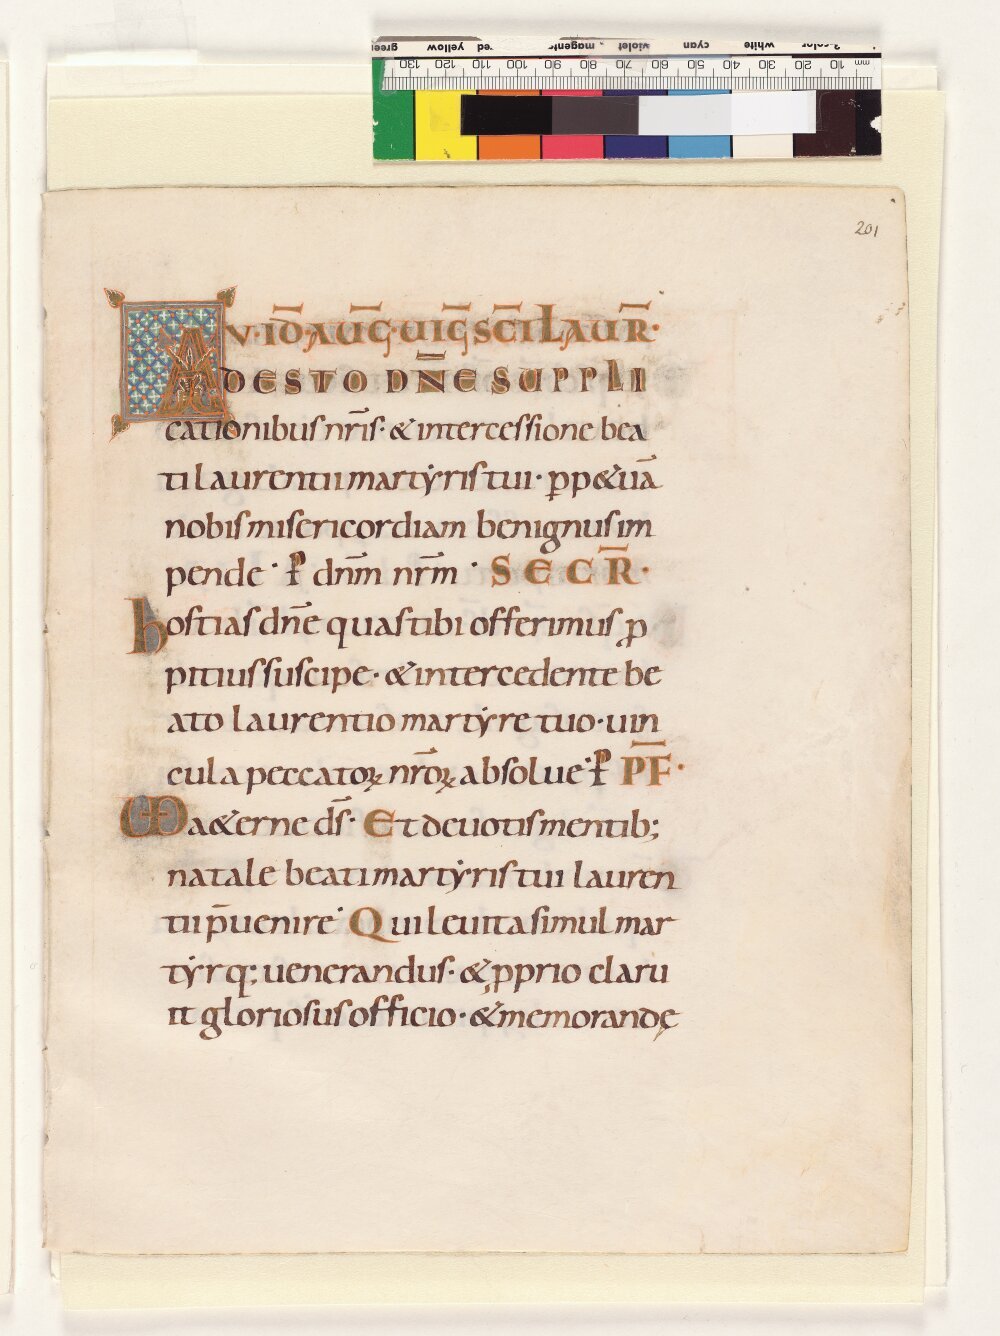 green yellow red magenta violet cyan white 3-color
130 120 110 100 90 80 70 60 50 40 30 20 10 mm
201
V·ID̄·AUḠ·UIḠ SC̄I LAUR̄·
ADESTO DN̄E SUPPLI
cationibus nr̄is· & intercessione bea
ti laurentii martẏris tui· ꝑp&uā
nobis misericordiam benignus im
pende· P̱ dn̄m nr̄m· SECR̄·
hostias dn̄e quas tibi offerimus ꝓ
pitius suscipe· & intercedente be
ato laurentio martẏre tuo· uin
cula peccatoꝝ nr̄oꝝ absolue· P̱ P̄F̄·
Ma&erne ds̄· Et deuotis mentib;
natale beati martẏris tui lauren
tii p̄uenire· Qui leuita simul mar
tẏrq; uenerandus· & ꝓprio claru
it gloriosus officio· & memorandę